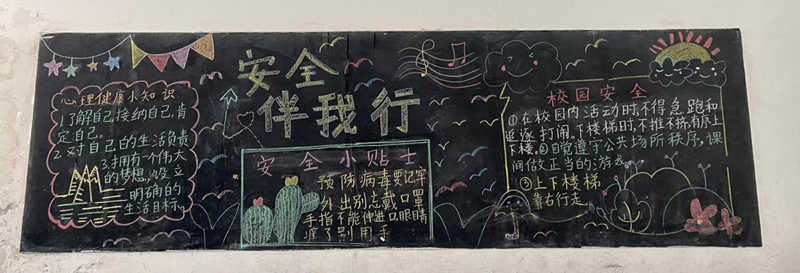 心理健康小知识
1.了解自己,接纳自己,肯
定自己。
2.对自己的生活负责
3.拥有一个伟大
的梦想,设立
明确的
生活目标。
安全
伴我行
安全小贴士
预防病毒要记牢
外出别忘戴口罩
手指不能伸进口眼睛
痒了别用手
校园安全
①在校园内活动时,不得急跑和
追逐打闹,下楼梯时,不推不挤,有序上
下楼。②自觉遵守公共场所秩序,课
间做正当的游
③上下楼梯
靠右行走。